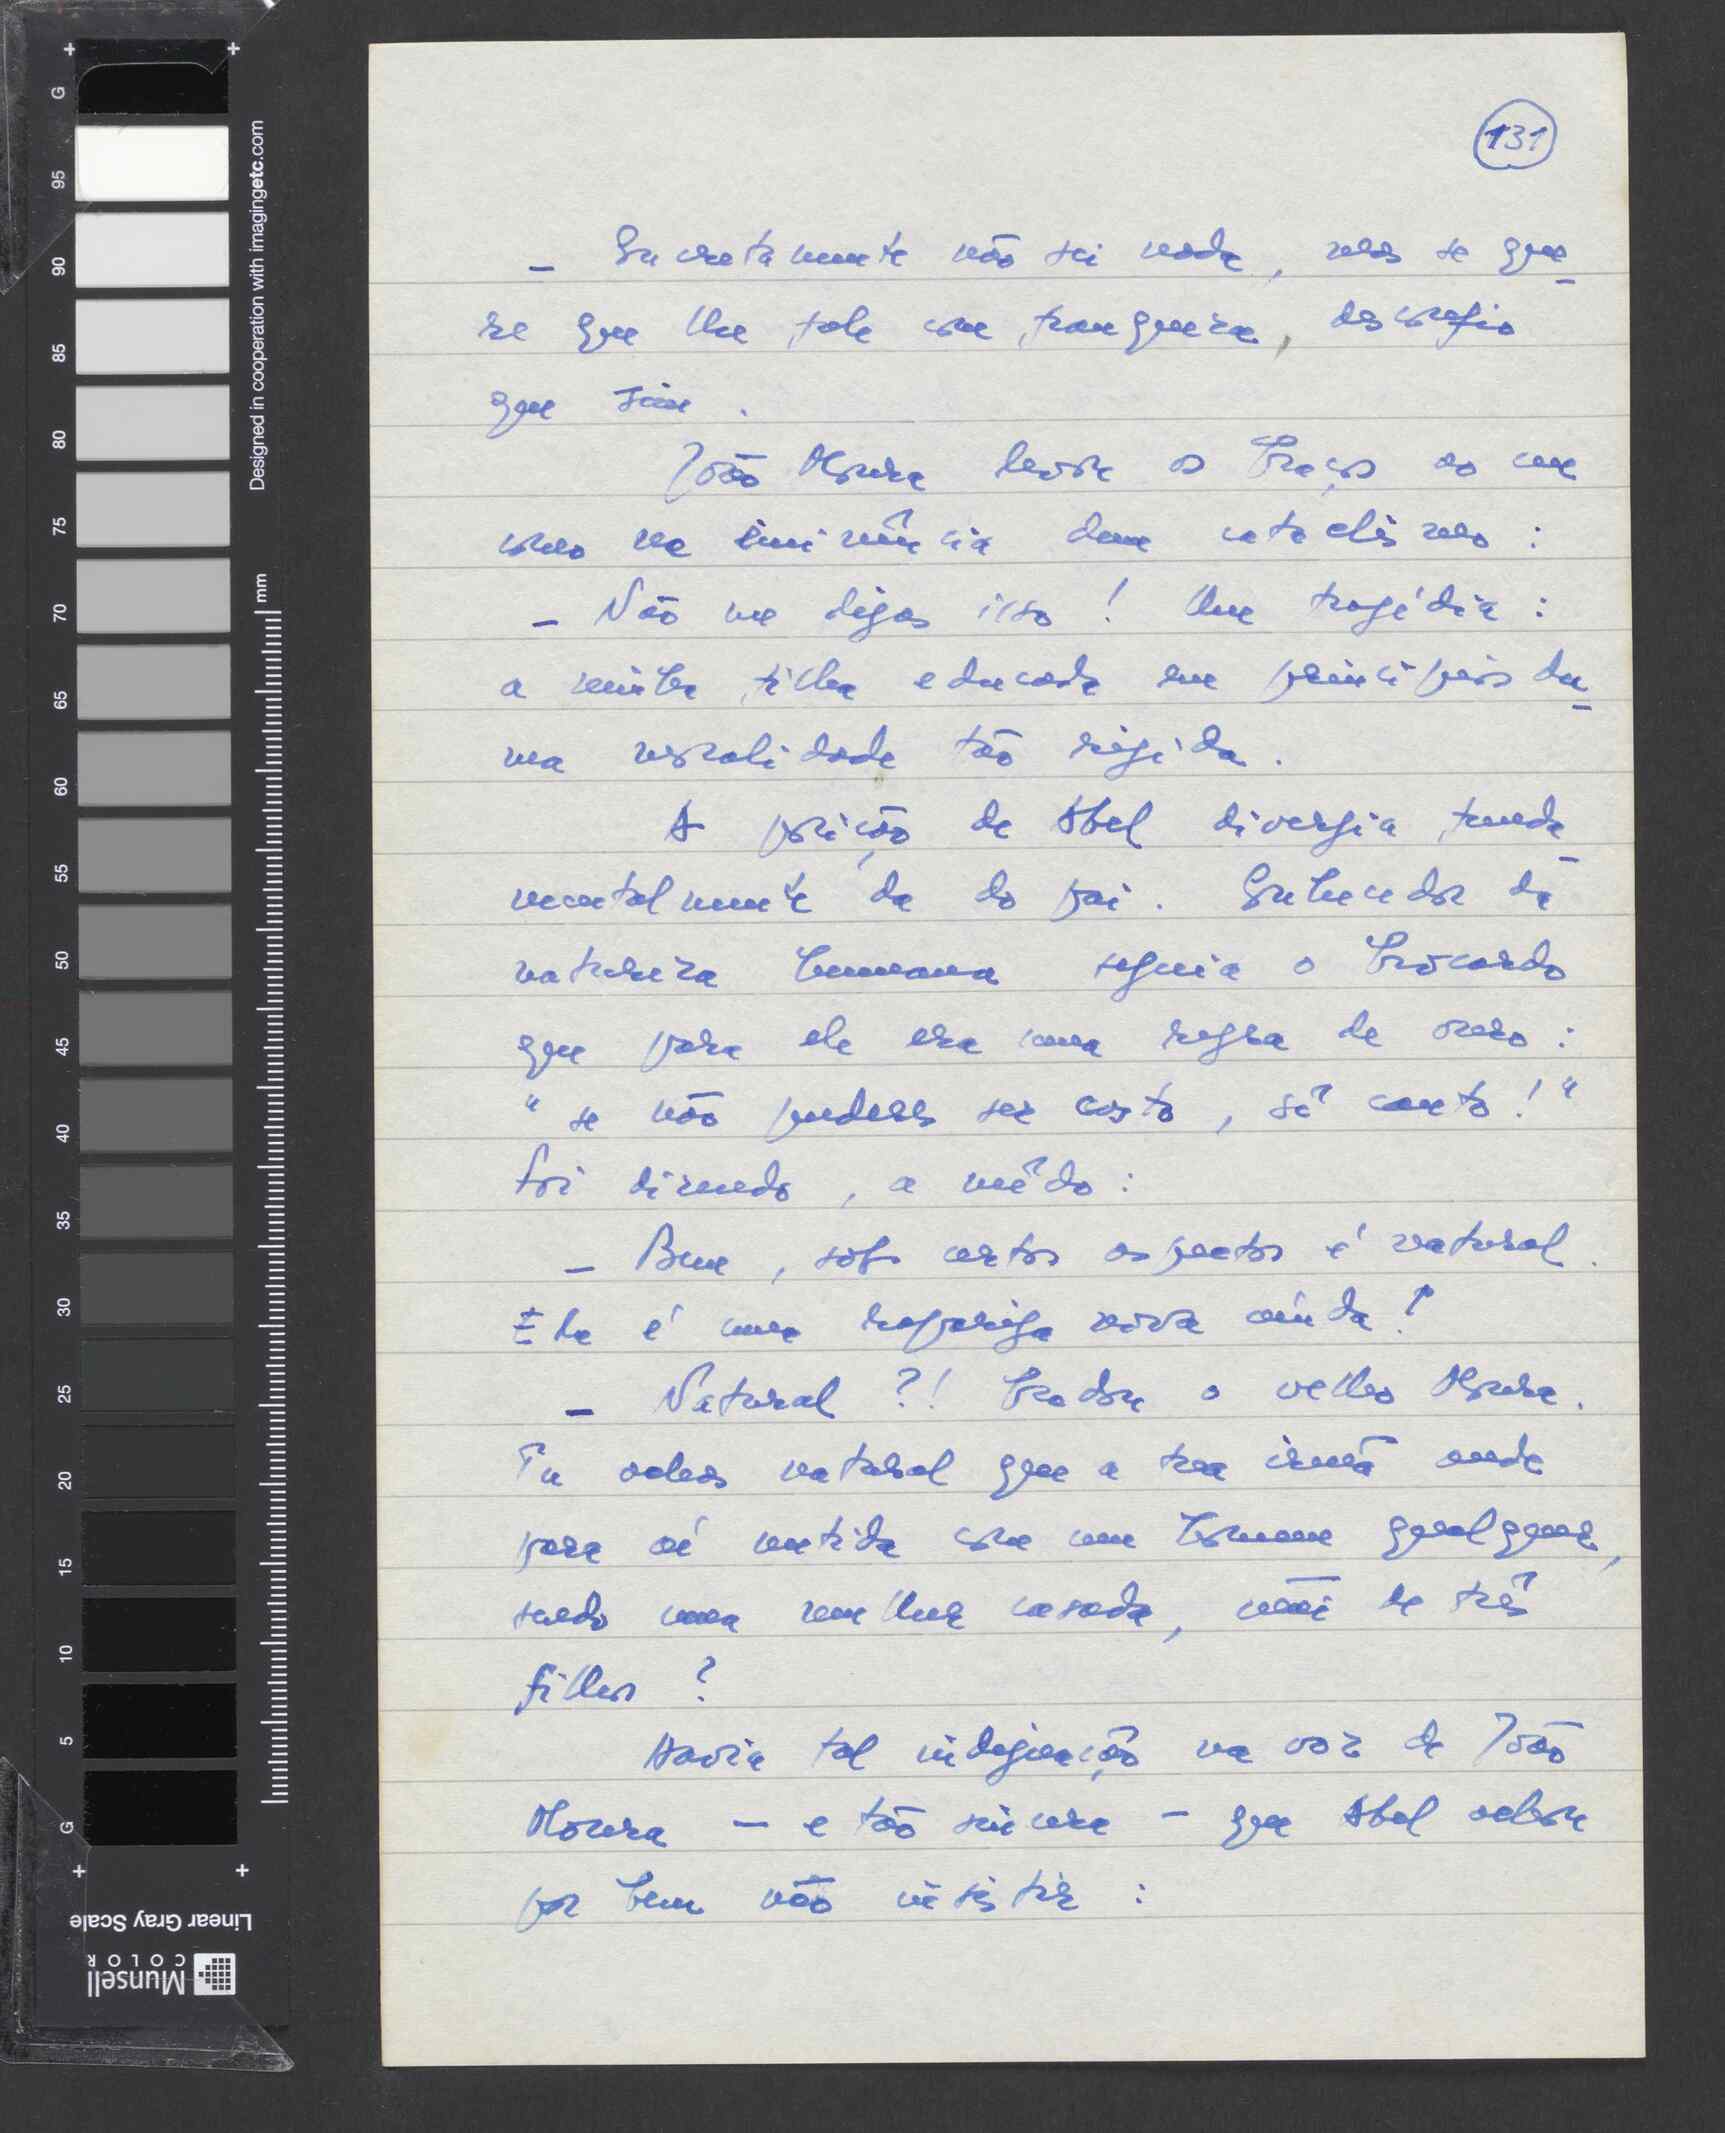 131
– Concretamente não sei nada, mas se que-
re que lhe fale com franqueza, desconfio
que sim.
João Moura levou os braços ao céu
como na iminência dum cataclismo:
– Não me digas isso! Uma tragédia:
a minha filha educada em princípios du-
ma moralidade tão rígida.
A posição de Abel divergia funda-
mentalmente da do pai. Conhecedor da
natureza humana seguia o brocardo
que para ele era uma regra de ouro:
"se não puderes ser casto, sê cauto!"
Foi dizendo, a mêdo:
– Bem, sob certos aspectos é natural.
Ela é uma rapariga nova ainda!
– Natural?! bradou o velho Moura.
Tu achas natural que a tua irmã ande
para aí metida com um homem qualquer,
sendo uma mulher casada, mãi de três
filhos?
Havia tal indignação na voz de João
Moura – e tão sincera – que Abel achou
por bem não insistir:
G
95
90
85
80
75
70
65
60
55
50
45
40
35
30
25
20
15
10
5
G
Designed in cooperation with imagingetc.com
mm
Linear Gray Scale
Munsell
COLOR